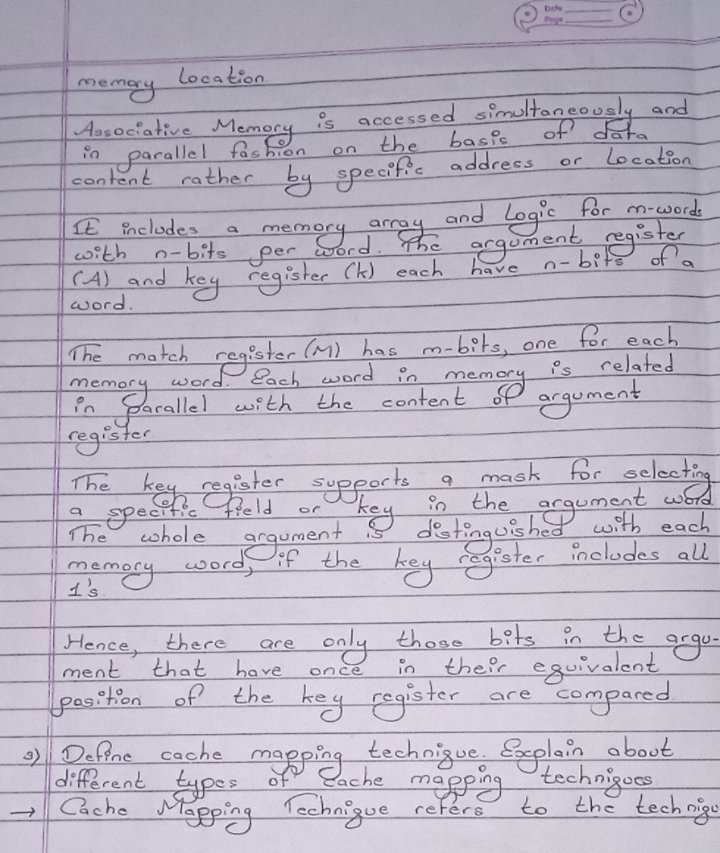 Date
Page
memory location
Associative Memory is accessed simultaneously and
in parallel fashion on the basis of data
content rather by specific address or location
It includes a memory array and logic for m-words
with n-bits per word. The argument register
(A) and key register (k) each have n-bits of a
word.
The match register (M) has m-bits, one for each
memory word. Each word in memory is related
in parallel with the content of argument
register
The key register supports a mask for selecting
a specific field or key in the argument word
The whole argument is distinguished with each
memory word, if the key register includes all
1's
Hence, there are only those bits in the argu-
ment that have once in their equivalent
position of the key register are compared
9) Define cache mapping technique. Explain about
different types of cache mapping techniques
→ Cache Mapping Technique refers to the techniqu